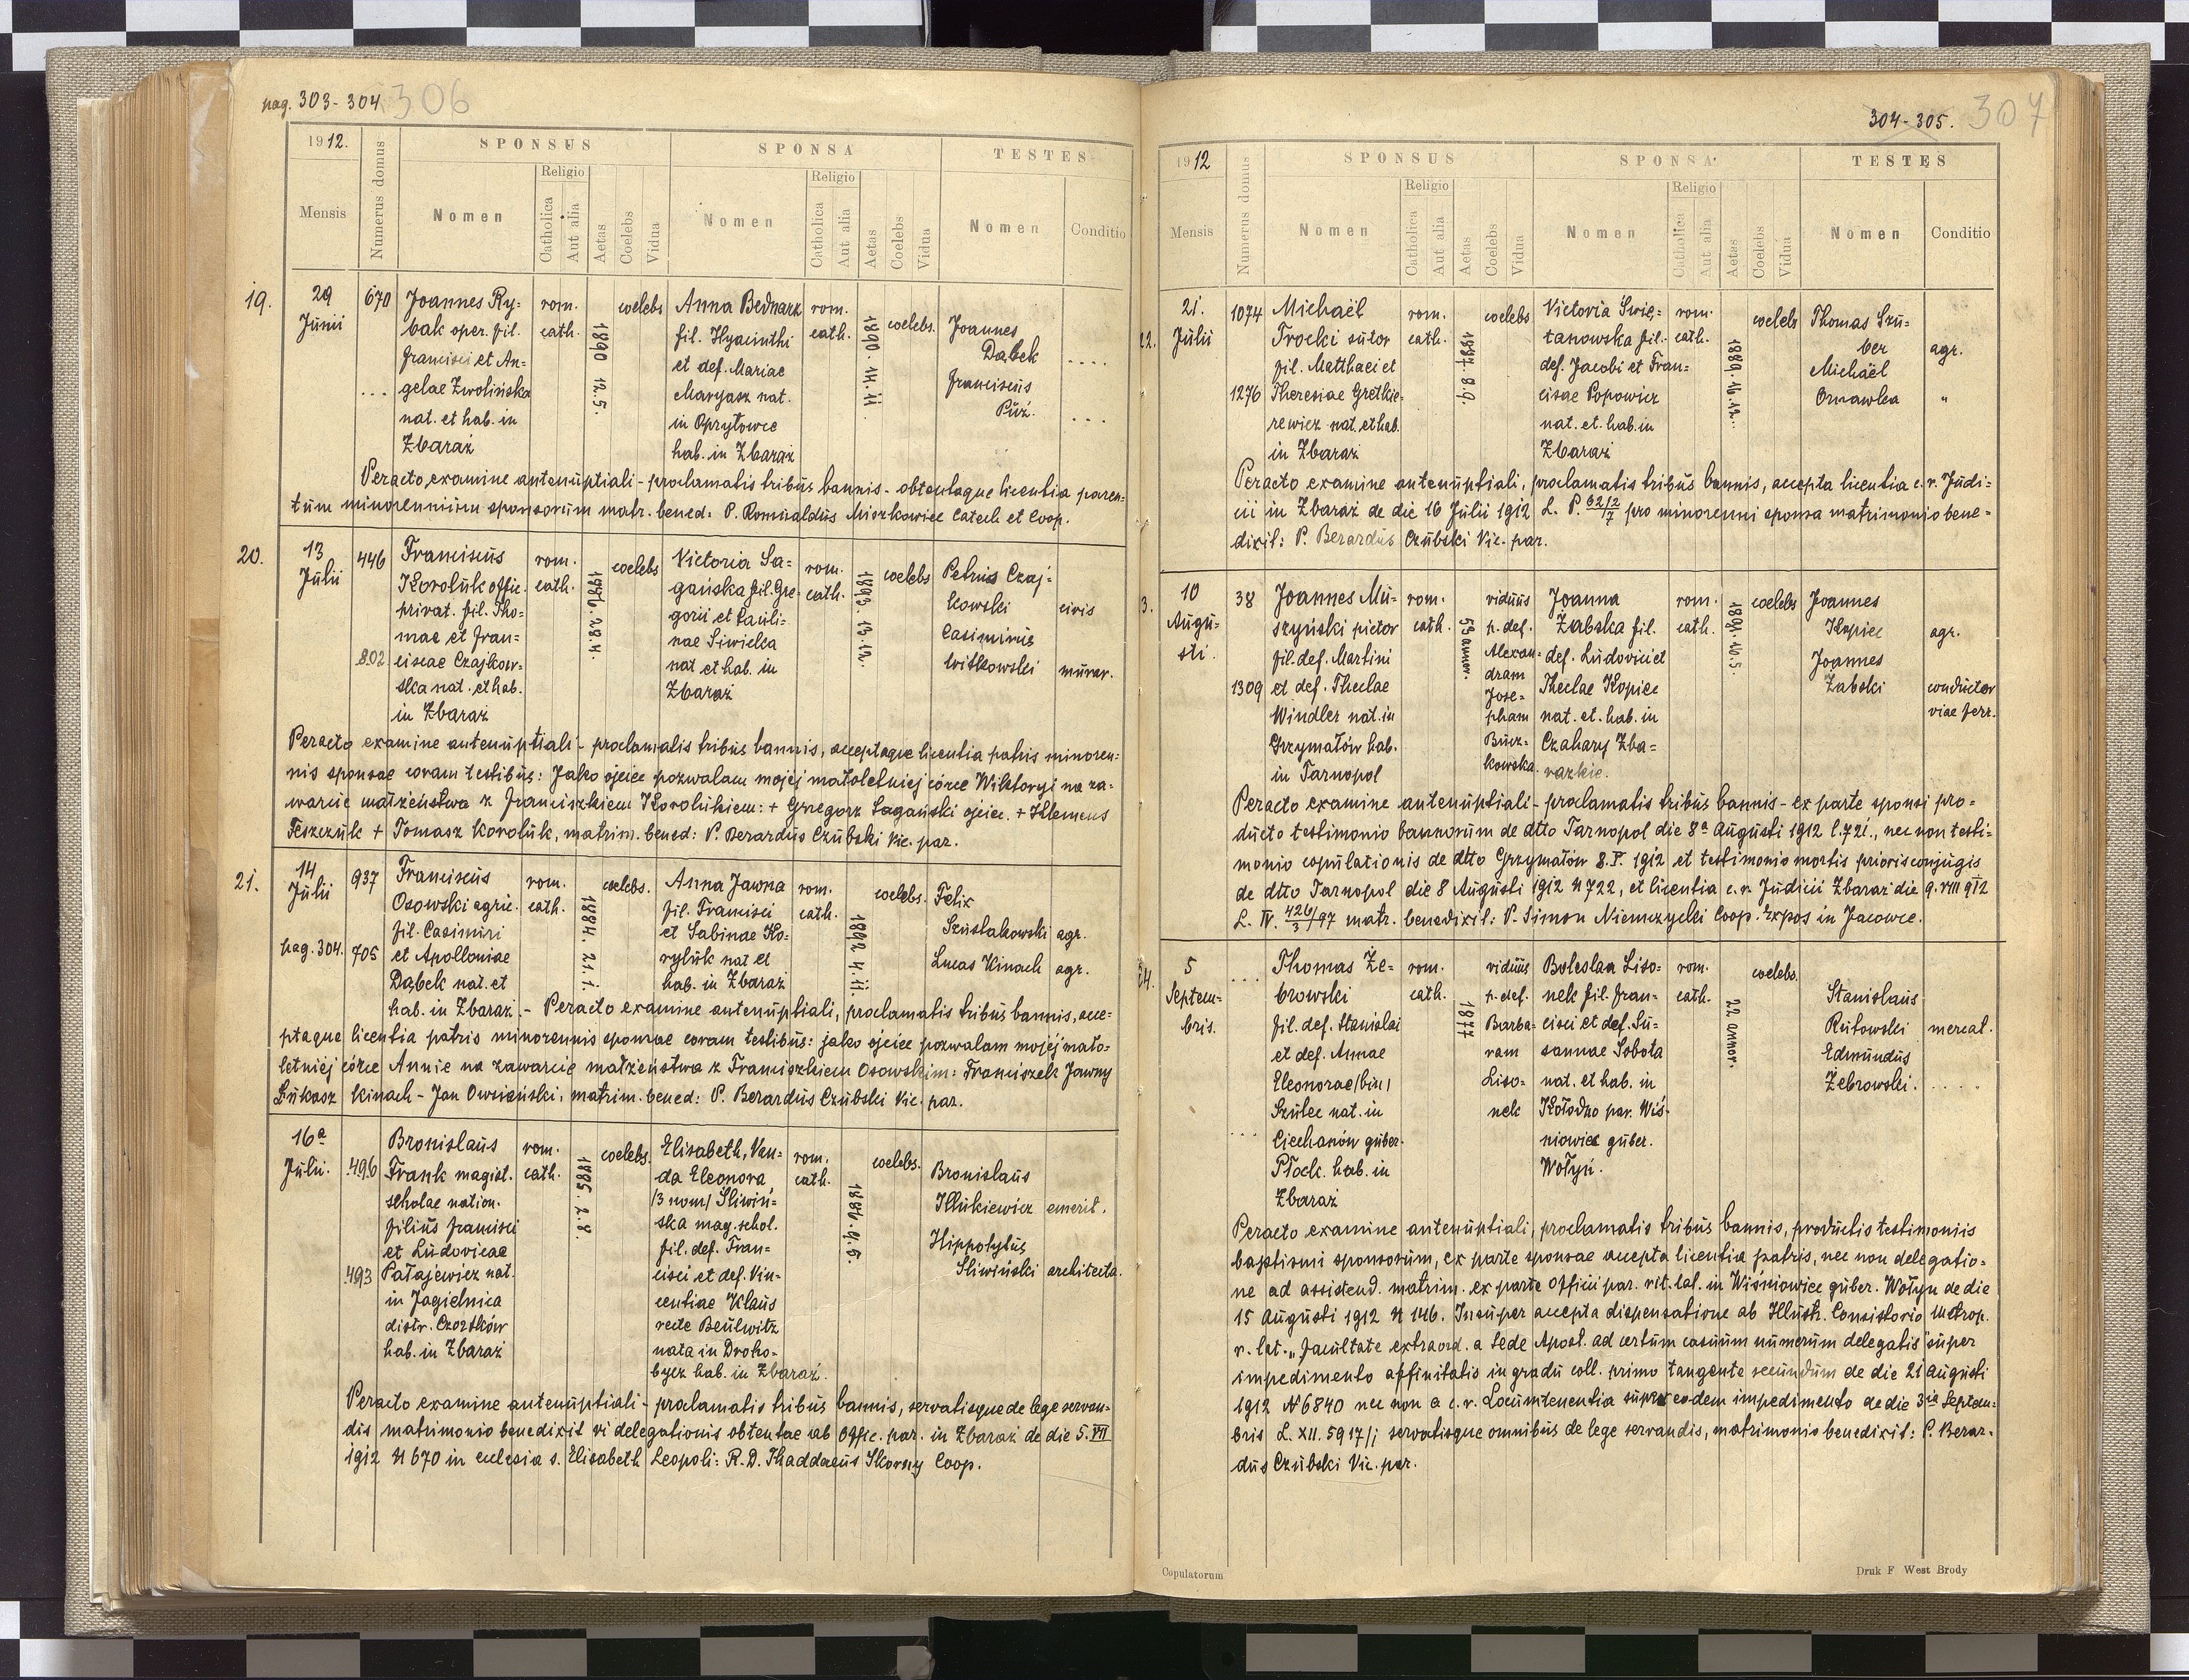 pag. 303-304 306
1912.
Mensis
Numerus domus
SPONSUS
Nomen
Religio
Catholica
Aut alia
Aetas
Coelebs
Vidua
SPONSA
Nomen
Religio
Catholica
Aut alia
Aetas
Coelebs
Vidua
TESTES
Nomen
Conditio
19.
29
Junii
670
...
Joannes Ry-
bak oper. fil.
Francisci et An-
gelae Zwolińska
nat. et hab. in
Zbaraż
rom.
cath.
1890 12.5.
coelebs
Anna Bednarz
fil. Hyacinthi
et def. Mariae
Maryasz nat.
in Opryłowce
hab. in Zbaraż
rom.
cath.
1890. 14. 11.
coelebs.
Joannes
Dąbek
....
Franciscus
Púz.
...
Peracto examine antenuptiali - proclamatis tribus bannis - obtentaque licentia paren-
tum minorennium sponsorum matr. bened: P. Romualdus Miszkowicz Catech et Coop.
20.
13
Julii
446
802
Franciscus
Korolúk offic.
privat. fil. Tho-
mae et Fran-
ciscae Czajkow-
ska nat. et hab.
in Zbaraż
rom.
cath.
1886. 28.4.
coelebs
Victoria Sa-
gańska fil. Gre-
gorii et Pauli=
nae Siwiecka
nat et hab. in
Zbaraż
rom.
cath.
1893. 13. 12.
coelebs
Petrus Czaj-
kowski
civis
Casimirus
Witkowski
murar.
Peracto examine antenuptiali - proclamatis tribus bannis, acceptaque licentia patris minoren-
nis sponsae coram testibus: Jako ojciec pozwalam mojej małoletniej córce Wiktoryi na za-
warcie małżeństwa z Franciszkiem Korolukiem: + Grzegorz Sagański ojciec. + Klemens
Teszczuk + Tomasz Koroluk, matrim. bened: P. Berardus Czubski Vic. par.
21.
14
Julii
pag. 304.
937
705
Franciscus
Osowski agric.
fil. Casimiri
et Apolloniae
Dąbek nat. et
hab. in Zbaraż
rom.
cath.
1884. 21. 1.
coelebs.
Anna Jawna
fil. Francisci
et Sabinae Ko-
ryluk nat et
hab. in Zbaraż
rom.
cath.
1892. 4. 11.
coelebs.
Felix
Szustakowski agr.
Lucas Kinach agr.
.- Peracto examine antenuptiali, proclamatis tribus bannis, acce=
ptaque licentia patris minorennis sponsae coram testibus: jako ojciec pozwalam mojej mało-
letniej córce Annie na zawarcie małżeństwa z Franciszkiem Osowskim: Franciszek Jawny
Łukasz Kinach - Jan Owsiański, matrim. bened: P. Berardus Czubski Vic. par.
16a
Julii.
496
493
Bronislaus
Frank magist.
scholae nation.
filius Francisci
et Ludovicae
Patajewicz nat.
in Jagielnica
distr. Czortków
hab. in Zbaraż
rom.
cath.
1885. 2. 8.
coelebs.
Elisabeth, Van-
da Eleonora
/3 nom/ Sliwiń-
ska mag. schol.
fil. def. Fran-
cisci et def. Vin-
centiae Klaus
recte Beulwitz
nata in Droho-
bycz hab. in Zbaraż.
rom.
cath.
1886. 9. 6.
coelebs.
Bronislaus
Illukiewicz emerit.
Hippolytus
Sliwiński architecta.
Peracto examine antenuptiali - proclamatis tribus bannis, servatisque de lege servan-
dis matrimonio benedixit vi delegationis obtentae ab Offic. par. in Zbaraż de die 5. VII
1912 N 670 in ecclesia s. Elisabeth Leopoli: R. D. Thaddaeus Skorny Coop.
304-305. 307
1912
Mensis
Numerus domus
SPONSUS
Nomen
Religio
Catholica
Aut alia
Aetas
Coelebs
Vidua
SPONSA
Nomen
Religio
Catholica
Aut alia
Aetas
Coelebs
Vidua
TESTES
Nomen
Conditio
22.
21.
Julii
1074
1276
Michaël
Trocki sutor
fil. Matthaei et
Theresiae Gretkie-
rewicz nat. et hab.
in Zbaraż
rom.
cath.
1887. 8. 9.
coelebs
Victoria Swię-
tanowska fil.
def. Jacobi et Fran=
ciscae Popowicz
nat. et. hab. in
Zbaraż
rom.
cath.
coelebs
Thomas Szu-
ber
agr.
Michaël
Omawka
"
Peracto examine antenuptiali, proclamatis tribus bannis, accepta licentia c. r. Judi=
cii in Zbaraż de die 16 Julii 1912 L. P. 62/2/7 pro minorenni sponsa matrimonio bene=
dixit: P. Berardus Czubski Vic. par.
3.
10
Augu-
sti.
38
1309
Joannes Mu=
szyński pictor
fil. def. Martini
et def. Theclae
Windler nat. in
Grzymałów hab.
in Tarnopol
rom.
cath.
53 annor.
viduus
p. def.
Alexan-
dram
Jose-
pham
Bucz-
kowska
Joanna
Żabska fil.
def. Ludovici et
Theclae Kopiec
nat. et. hab. in
Czahary Zba=
razkie.
rom.
cath.
1891. 10. 5.
coelebs
Joannes
Kopiec
agr.
Joannes
Żabski
conductor
viae ferr.
Peracto examine antenuptiali - proclamatis tribus bannis - ex parte sponsi pro=
ducto testimonio bannorum de dtto Tarnopol die 8a Augusti 1912 l. 721., nec non testi=
monio copulationis de dtto Grzymałów 8. V. 1912 et testimonio mortis prioris conjugis
de dtto Tarnopol die 8 Augusti 1912 N 722, et licentia c. r. Judicii Zbaraż die 9. VIII 912
L. IV. 426/3/97 matr. benedixit: P. Simon Niemczycki Coop. Expos in Jacowce.
24.
5
Septem-
bris.
...
...
Thomas Że-
browski
fil. def. Stanislai
et def. Annae
Eleonorae /bin/
Szulec nat. in
Ciechanów guber.
Płock. hab. in
Zbaraż
rom.
cath.
1877
viduus
p. def.
Barba-
ram
Liso-
nek
Boleslaa Liso-
nek fil. Fran-
cisci et def. Su-
sannae Sobota
nat. et hab. in
Kołodno par. Wiś-
niowiec guber.
Wołyń.
rom.
cath.
22 annor.
coelebs.
Stanislaus
Rutowski mercat.
Edmundus
Żebrowski. ....
Peracto examine antenuptiali, proclamatis tribus bannis, productis testimoniis
baptismi sponsorum, ex parte sponsae accepta licentia patris, nec non delegatio=
ne ad assistend. matrim. ex parte Officii par. rit. lat. in Wiśniowiec guber. Wołyn de die
15 Augusti 1912 N 146. Insuper accepta dispensatione ab Illustr. Consistorio Metrop.
r. lat. „facultate extraord. a Sede Apost. ad certum casuum numerum delegatis" super
impedimento affinitatis in gradu coll. primo tangente secundum de die 21 Augusti
1912 N 6840 nec non a c. r. Locumtenentia super eodem impedimento de die 3tia Septem-
bris L. XII. 5917/i servatisque omnibus de lege servandis, matrimonio benedixit: P. Berar-
dus Czubski Vic. par.
Copulatorum
Druk F West Brody